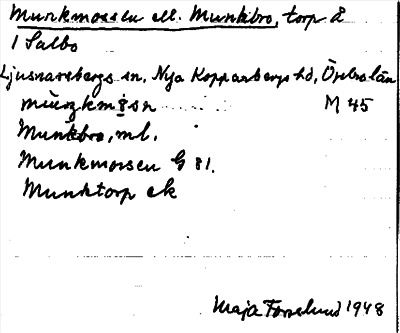 Munkmossen ell. Munkbro, torp å
1 Salbo
Ljusnarsbergs sn, Nya Kopparbergs hd, Örebro län
M 45
Munkbro, ml.
Munkmossen G 81.
Munktorp ek
Maja Forselund 1948